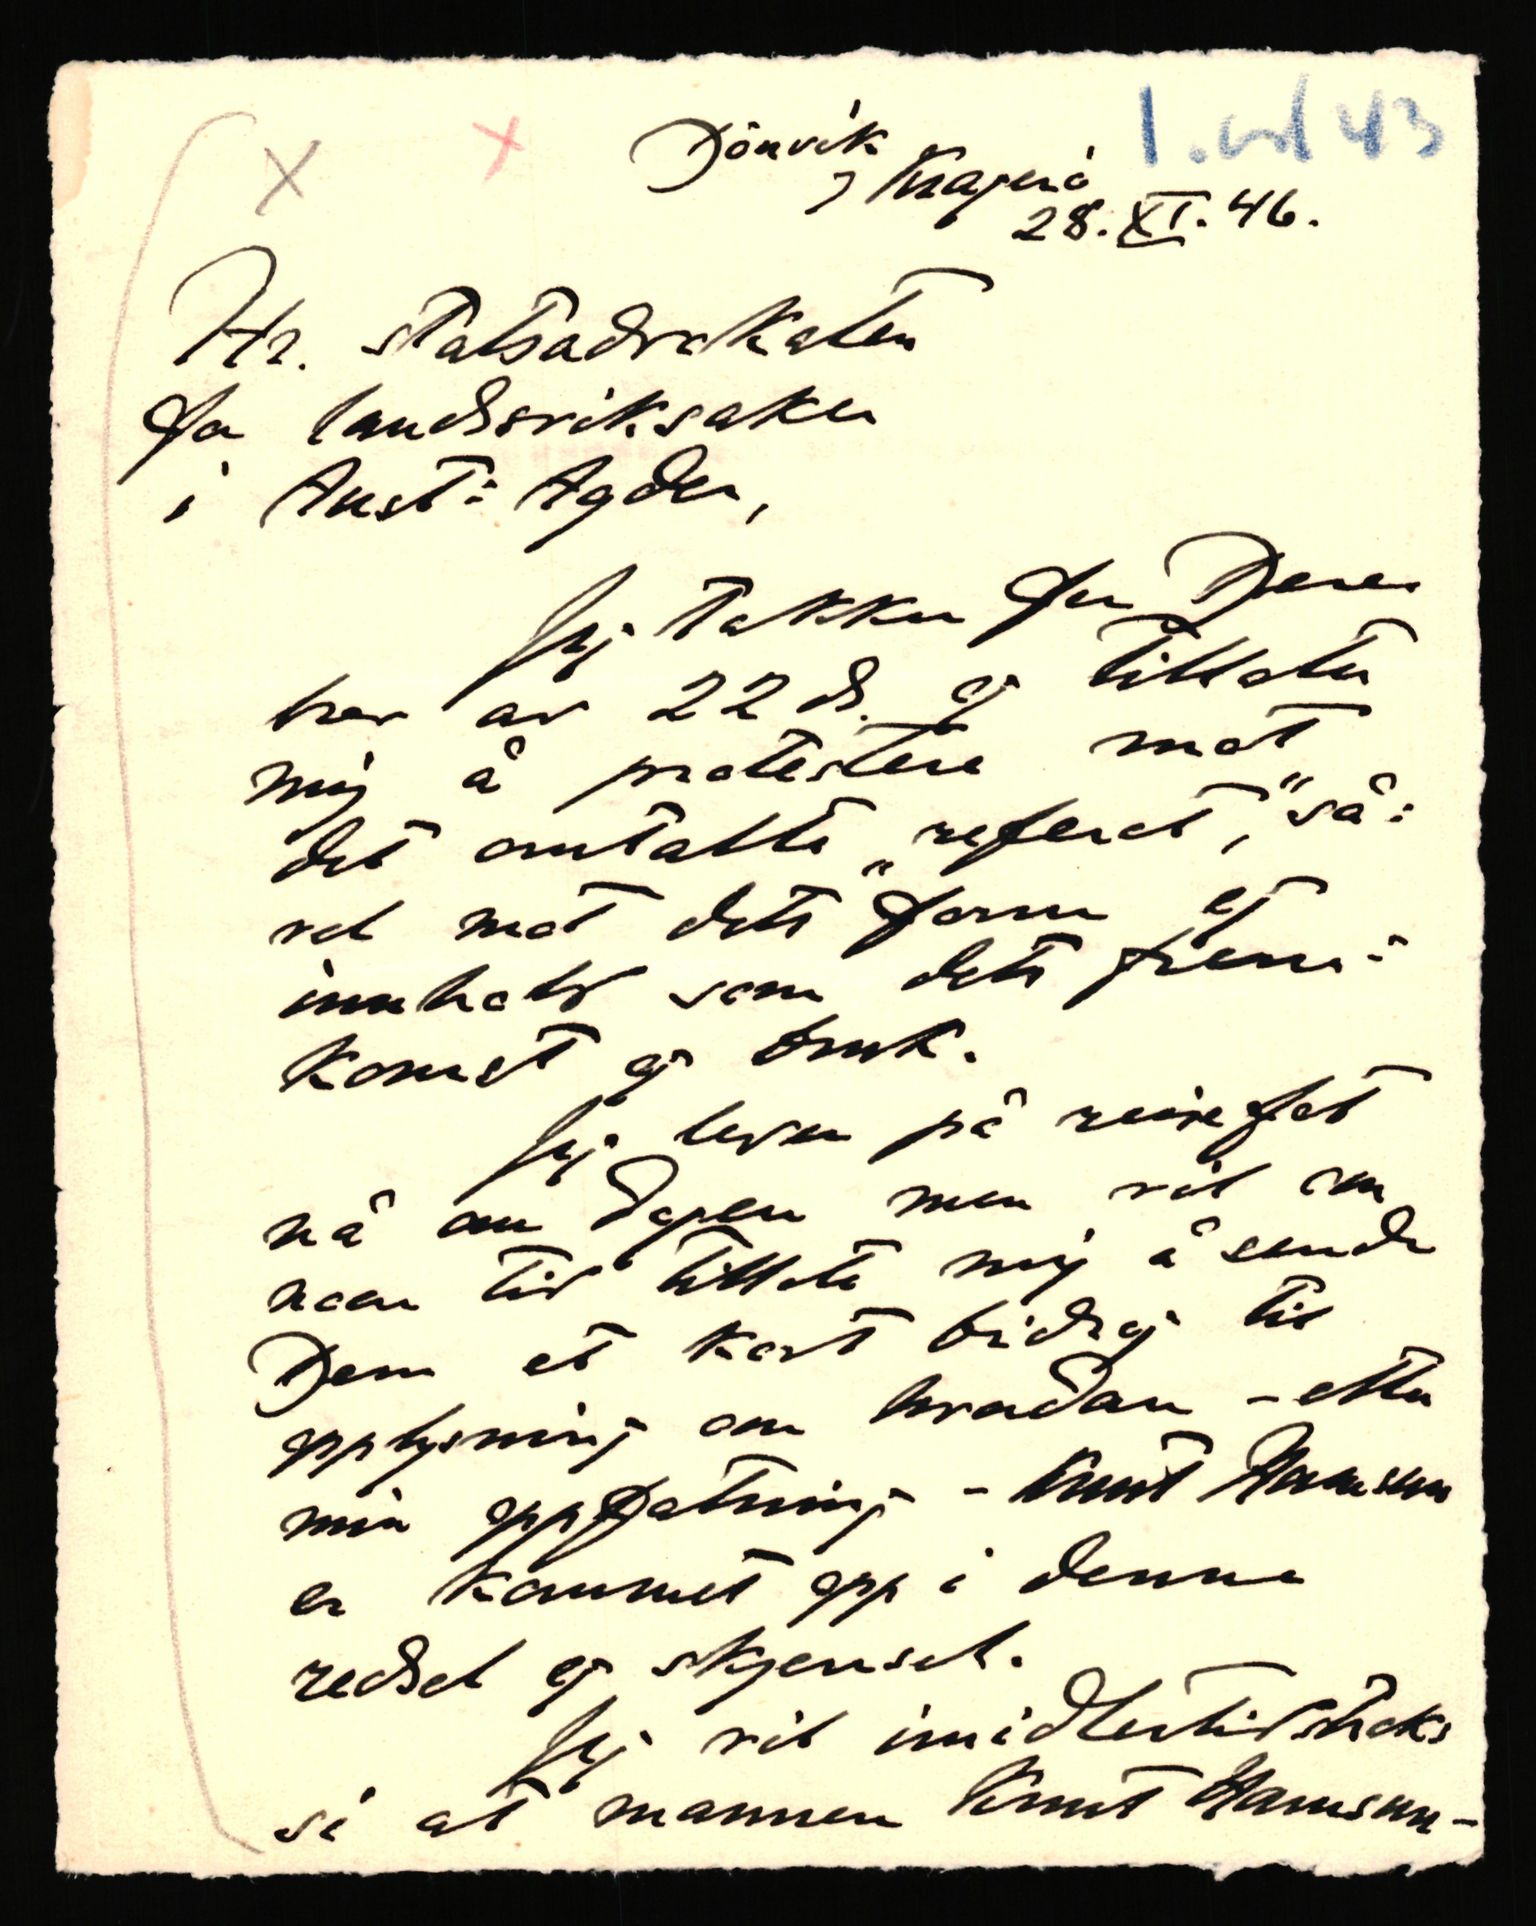 1. vol 43
Kragerø
28. XI. 46.
Hr. statsadvokaten
for landssviksaker
i Aust- Agder,
Jeg takker for Deres
brev av 22 ds. og tillater
mig å protestere mot
det omtalte „referat," så-
vel mot dets form og
innhold som dets frem-
komst og bruk.
Jeg lever på reisefot
nå om dagen men vil om
noen tid tillate mig å sende
Dem et kort bidrag til
opplysning om hvordan - etter
min oppfatning - Knut Hamsun
er kommet opp i denne
redsel og skjensel.
Jeg vil imidlertid straks
si at mannen Knut Hamsun -